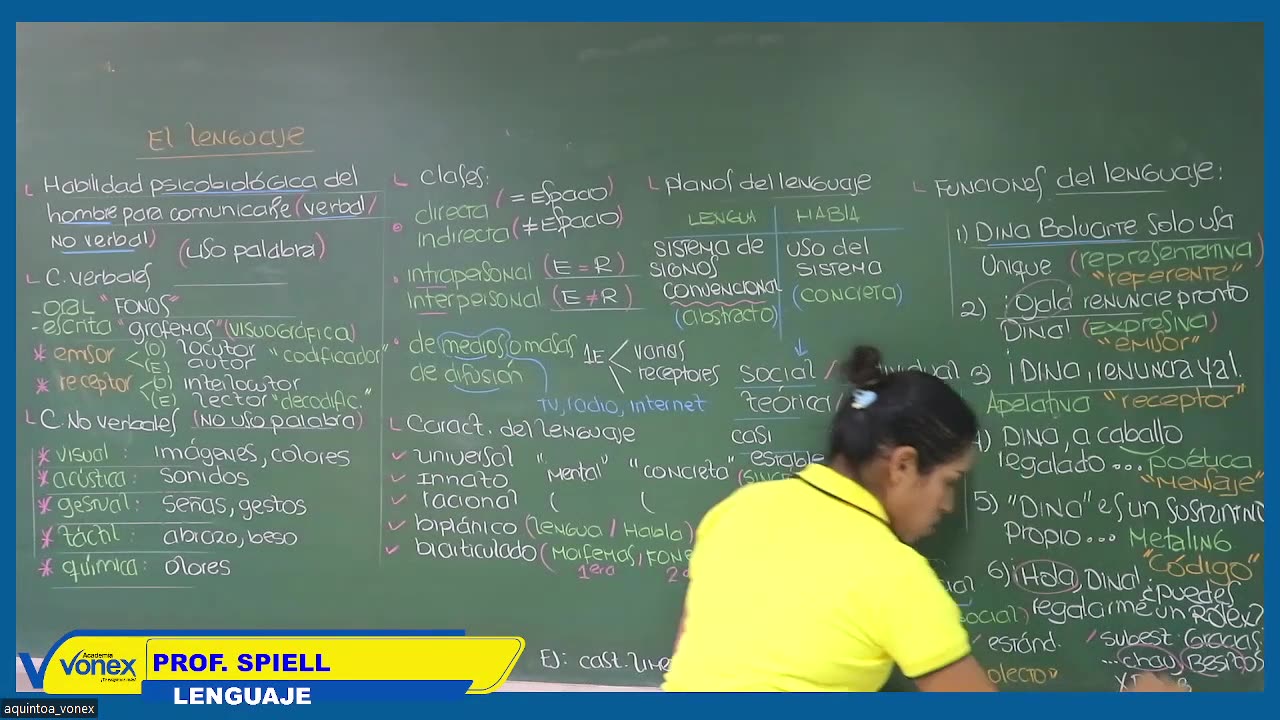 El lenguaje
Habilidad psicobiológica del
hombre para comunicarse (verbal/
no verbal) (uso palabra)
C. verbales
- oral "FONOS"
- escrita "grafemas" (visuográfica)
* emisor (O) locutor "codificador"
(E) autor
* receptor (O) interlocutor
(E) lector "decodific."
C. No verbales (no uso palabra)
* visual : imágenes, colores
* acústica : sonidos
* gestual : señas, gestos
* táctil : abrazo, beso
* química : olores
Clases:
directa (= Espacio)
indirecta (≠ Espacio)
intrapersonal (E = R)
interpersonal (E ≠ R)
de medios o masas 1E varios
de difusión receptores
TV, radio, internet
Caract. del lenguaje
universal "mental" "concreto"
Innato
racional ( (
biplánico (lengua / Habla)
biarticulado (Morfemas / FONE
1era 2
Planos del lenguaje
LENGUA HABLA
SISTEMA DE USO DEL
SIGNOS SISTEMA
CONVENCIONAL (CONCRETA)
(abstracto)
social /
teórica/
casi
estable
EJ: cast.
Funciones del lenguaje:
1) Dina Boluarte solo usa
Unique (representativa)
"referente"
2) ¡Ojalá renuncie pronto
Dina! (expresiva)
"emisor"
3) ¡Dina, renuncia ya!.
Apelativa "receptor"
) Dina, a caballo
regalado ... poética
"mensaje"
5) "Dina" es un sustantivo
propio ... Metaling
"código"
6) Hola, Dina! ¿puedes
regalarme un Rolex?
social)
estánd. / subest: Gracias
... chau, Besitos
olecto"
Academia
Vonex
PROF. SPIELL
LENGUAJE
aquintoa_vonex